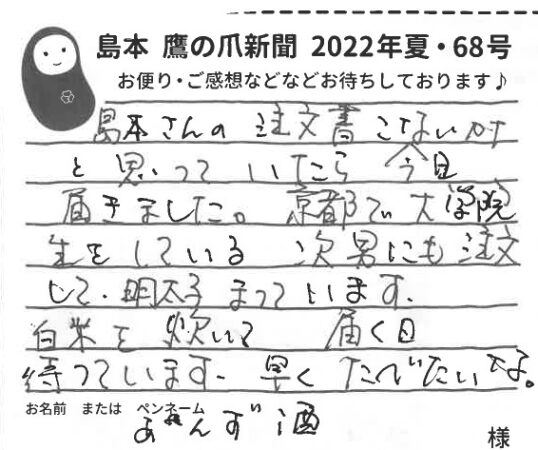 島本 鷹の爪新聞 2022年夏・68号
お便り・ご感想などなどお待ちしております♪
島本さんの 注文書 こないか
と 思って いたら 今日
届きました。 京都で 大学院
生をしている 次男にも 注文
して、明太子 まっています、
白米を 炊いて 届く日
待っています、早く たべたいな。
お名前 または ペンネーム
あんず酒
様